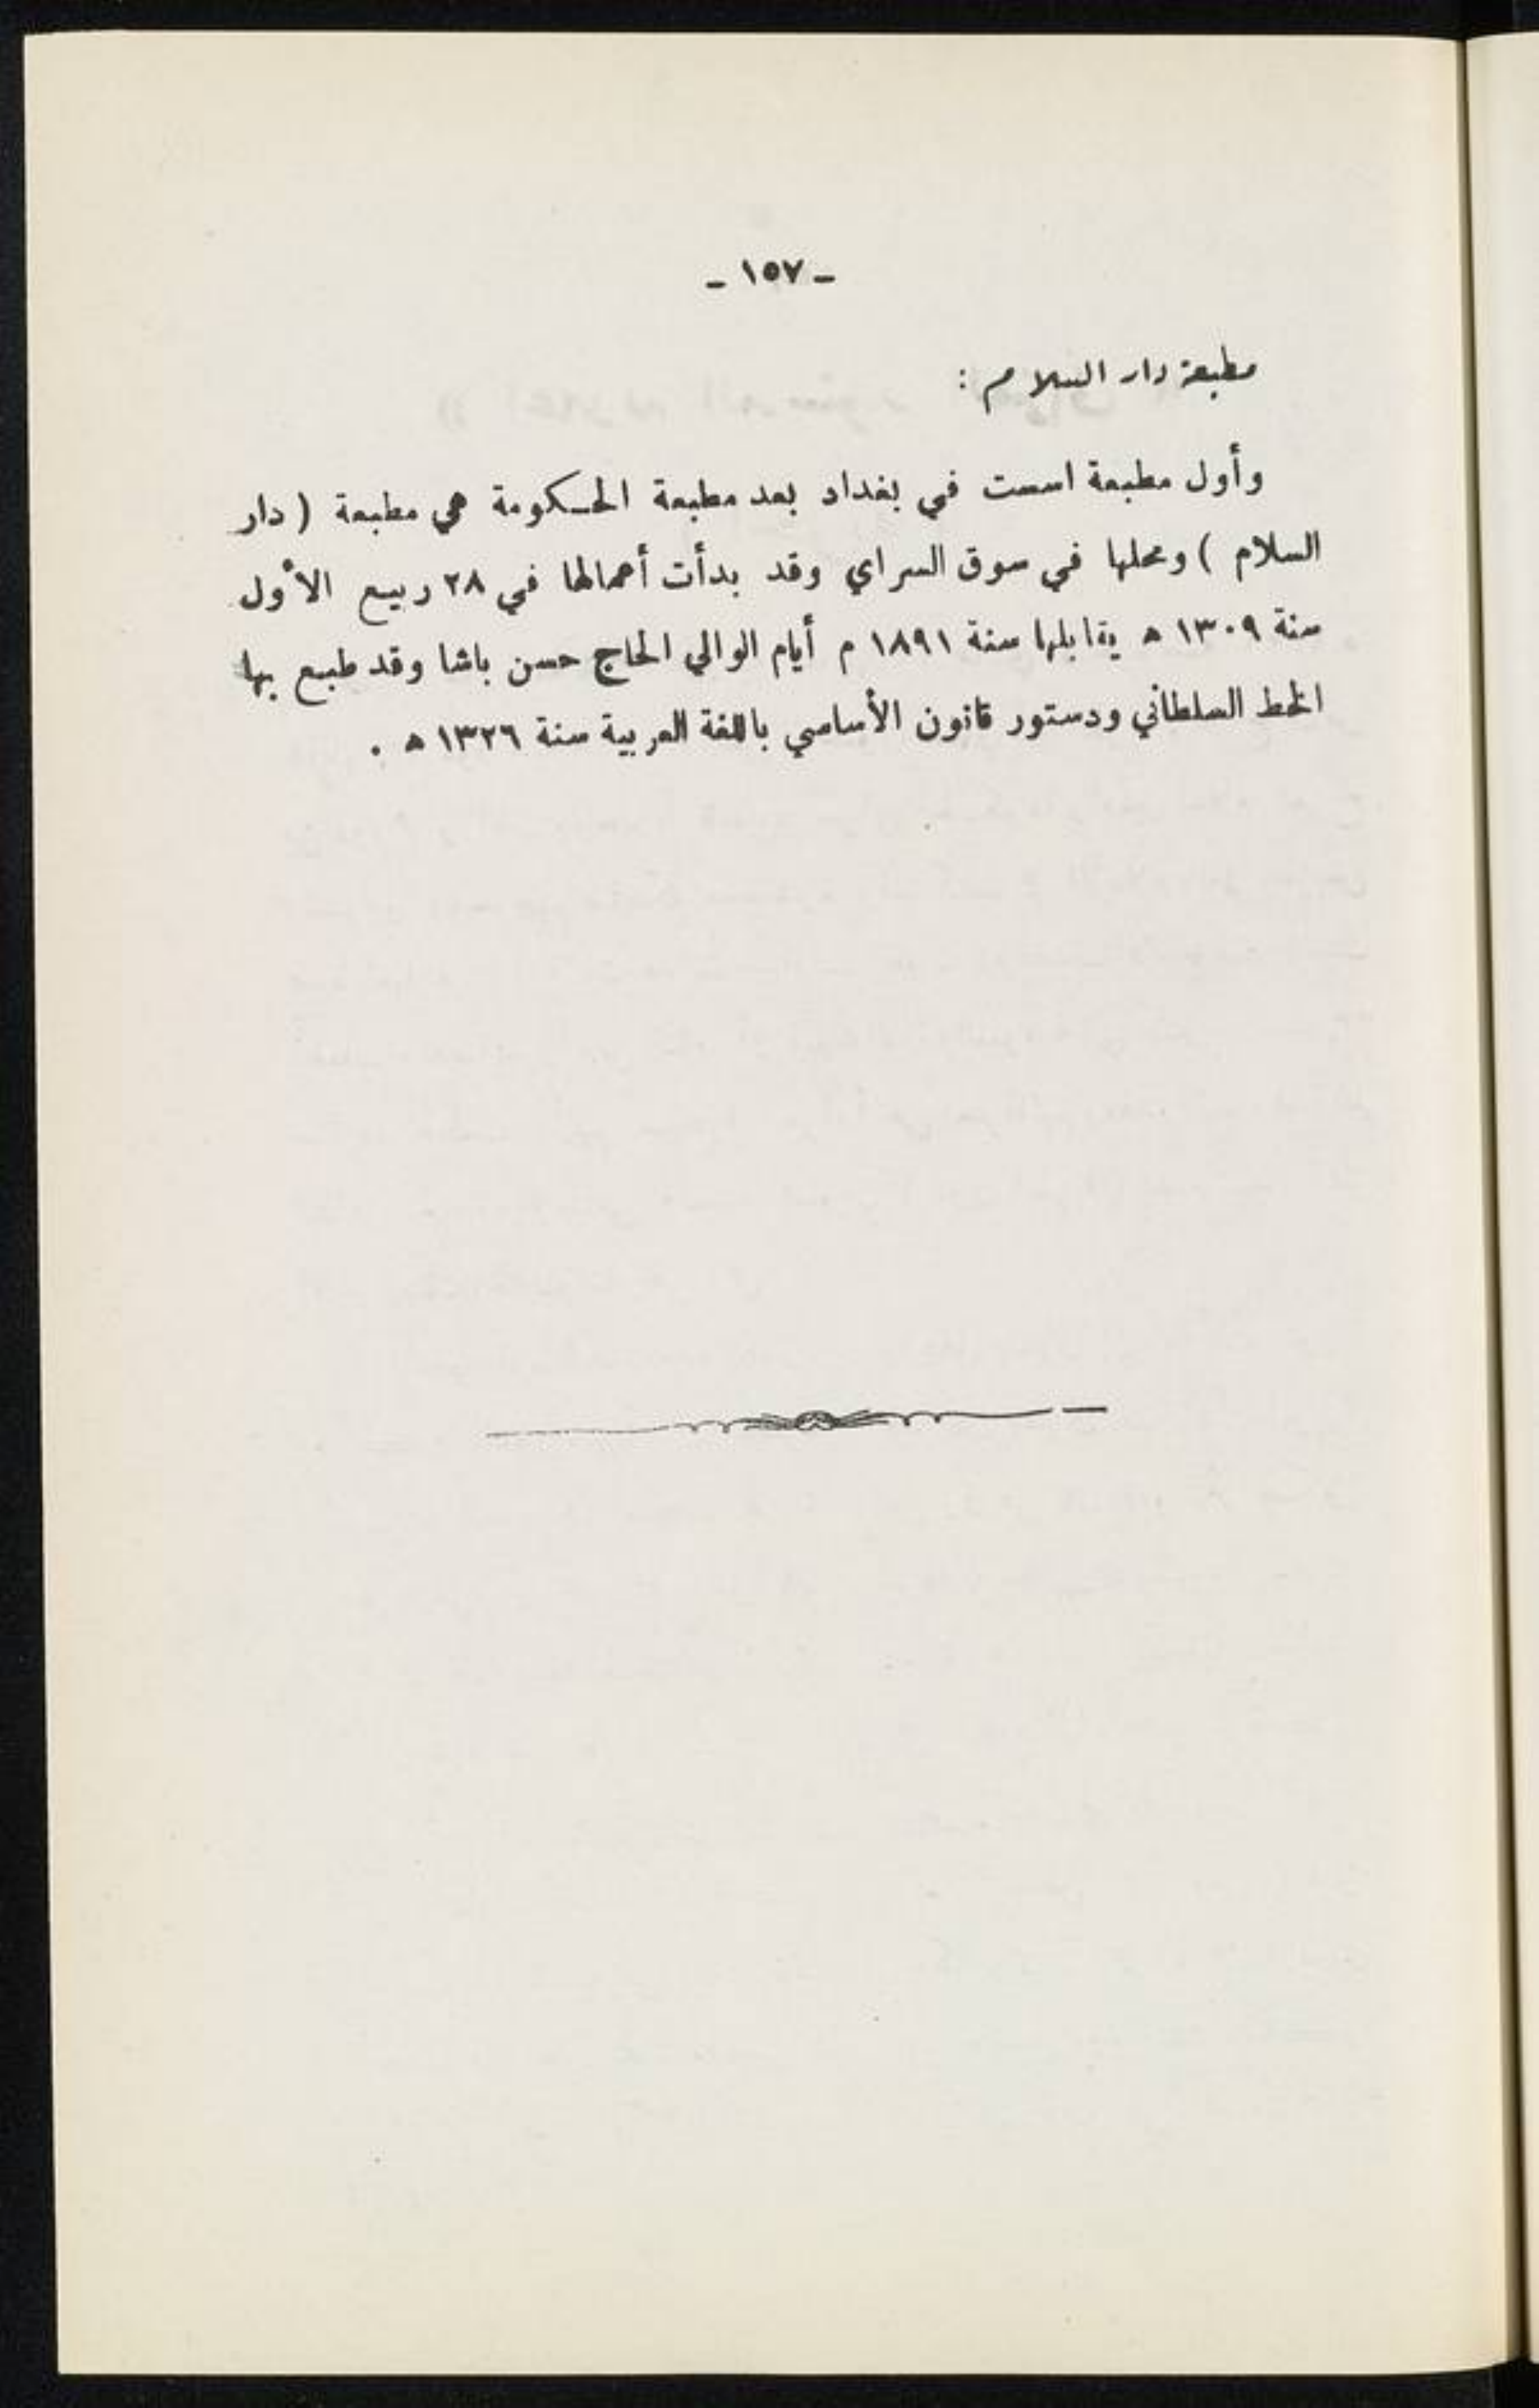 - ١٥٧ -
مطبعة دار السلام :
وأول مطبعة اسست في بغداد بعد مطبعة الحكومة هي مطبعة ( دار
السلام ) ومحلها في سوق السراي وقد بدأت أعمالها في ٢٨ ربيع الأول
سنة ١٣٠٩ ه يقابلها سنة ١٨٩١ م أيام الوالي الحاج حسن باشا وقد طبع بها
الخط السلطاني ودستور قانون الأساسي باللغة العربية سنة ١٣٢٦ ه .